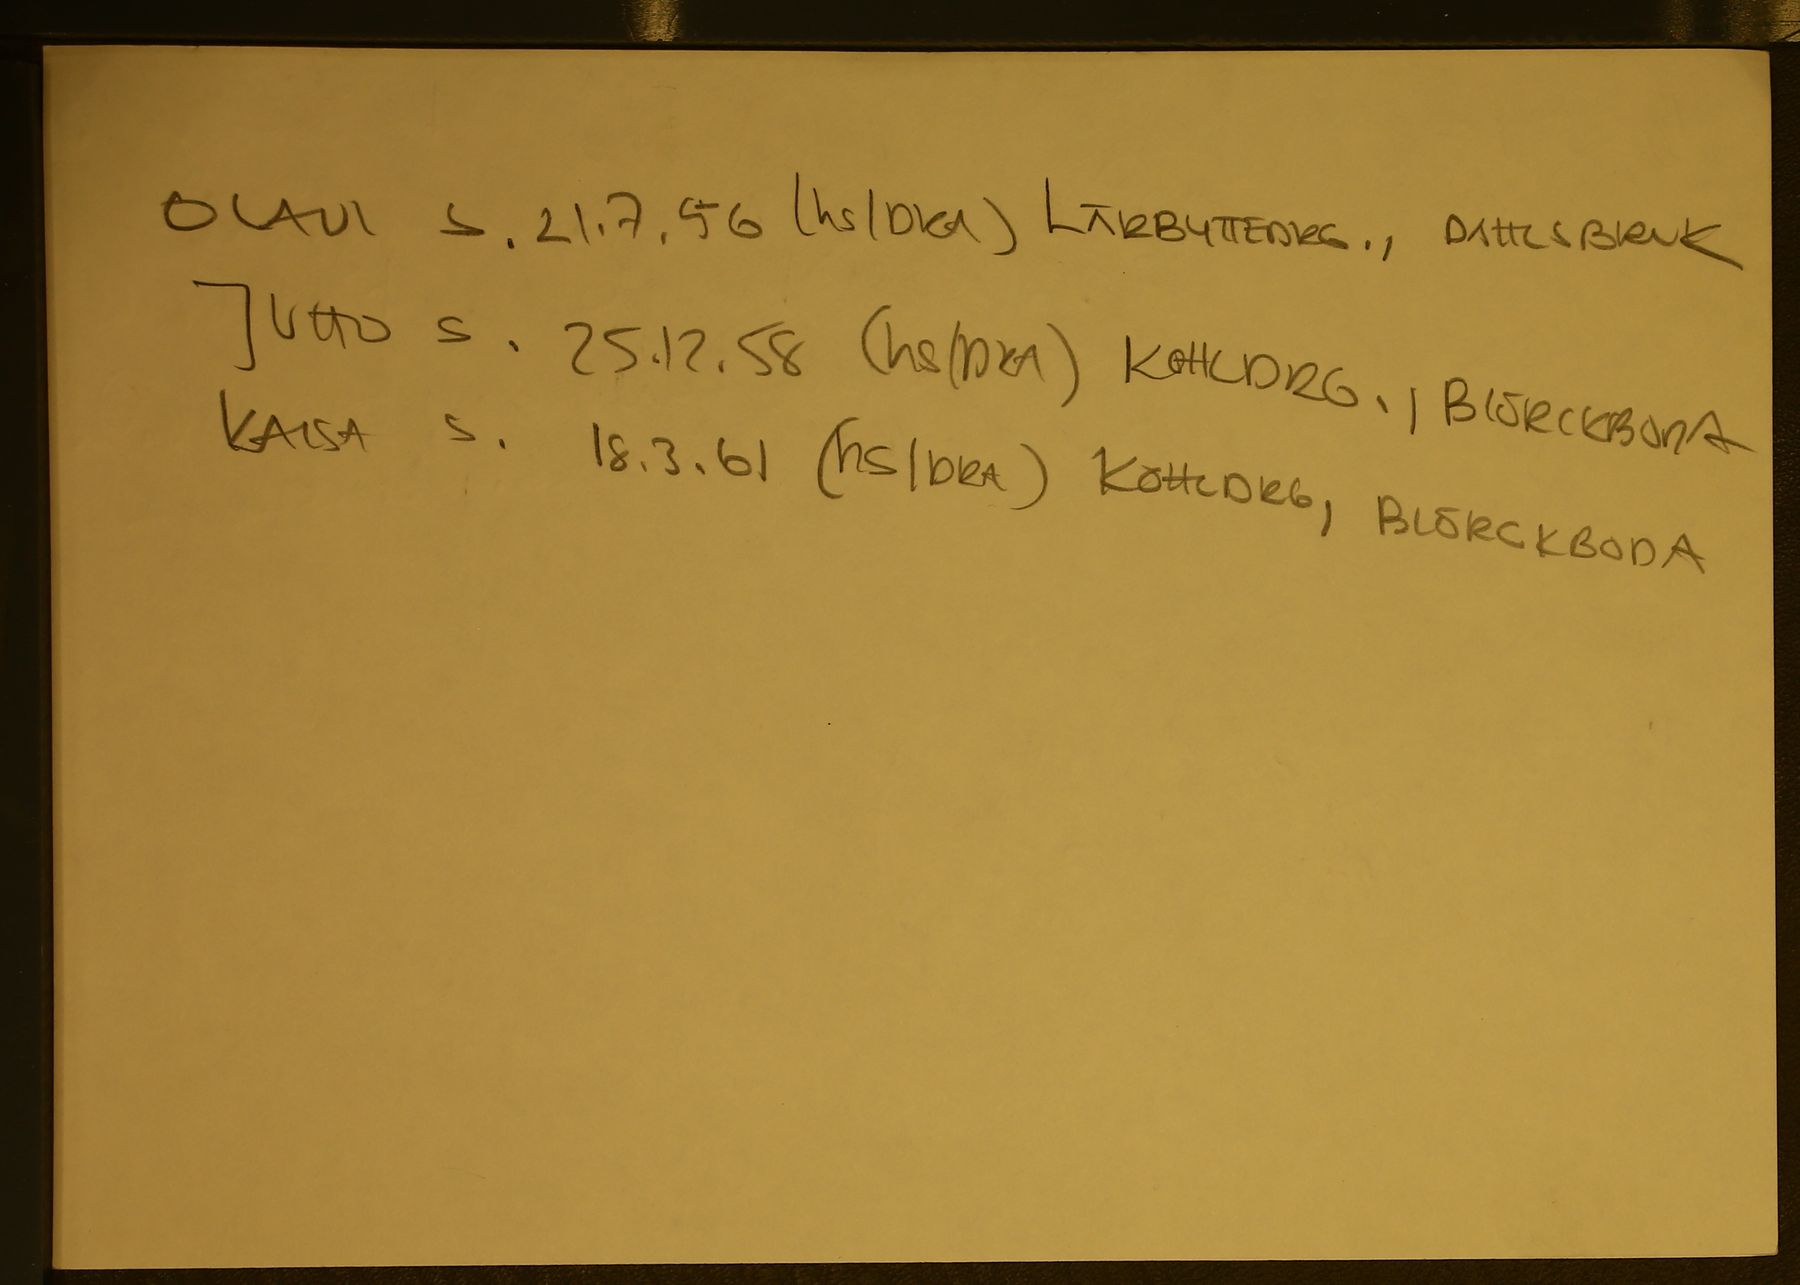 OLAVI S. 21.7.56 (hS/DRA) LÄRBYTTEDRG., DAHLSBRUK
JUHO S. 25.12.58 (hS/DRA) KÖHLDRG., BLÖRCKBODA
KAISA S. 18.3.61 (hS/DRA) KÖHLDRG, BLÖRCKBODA